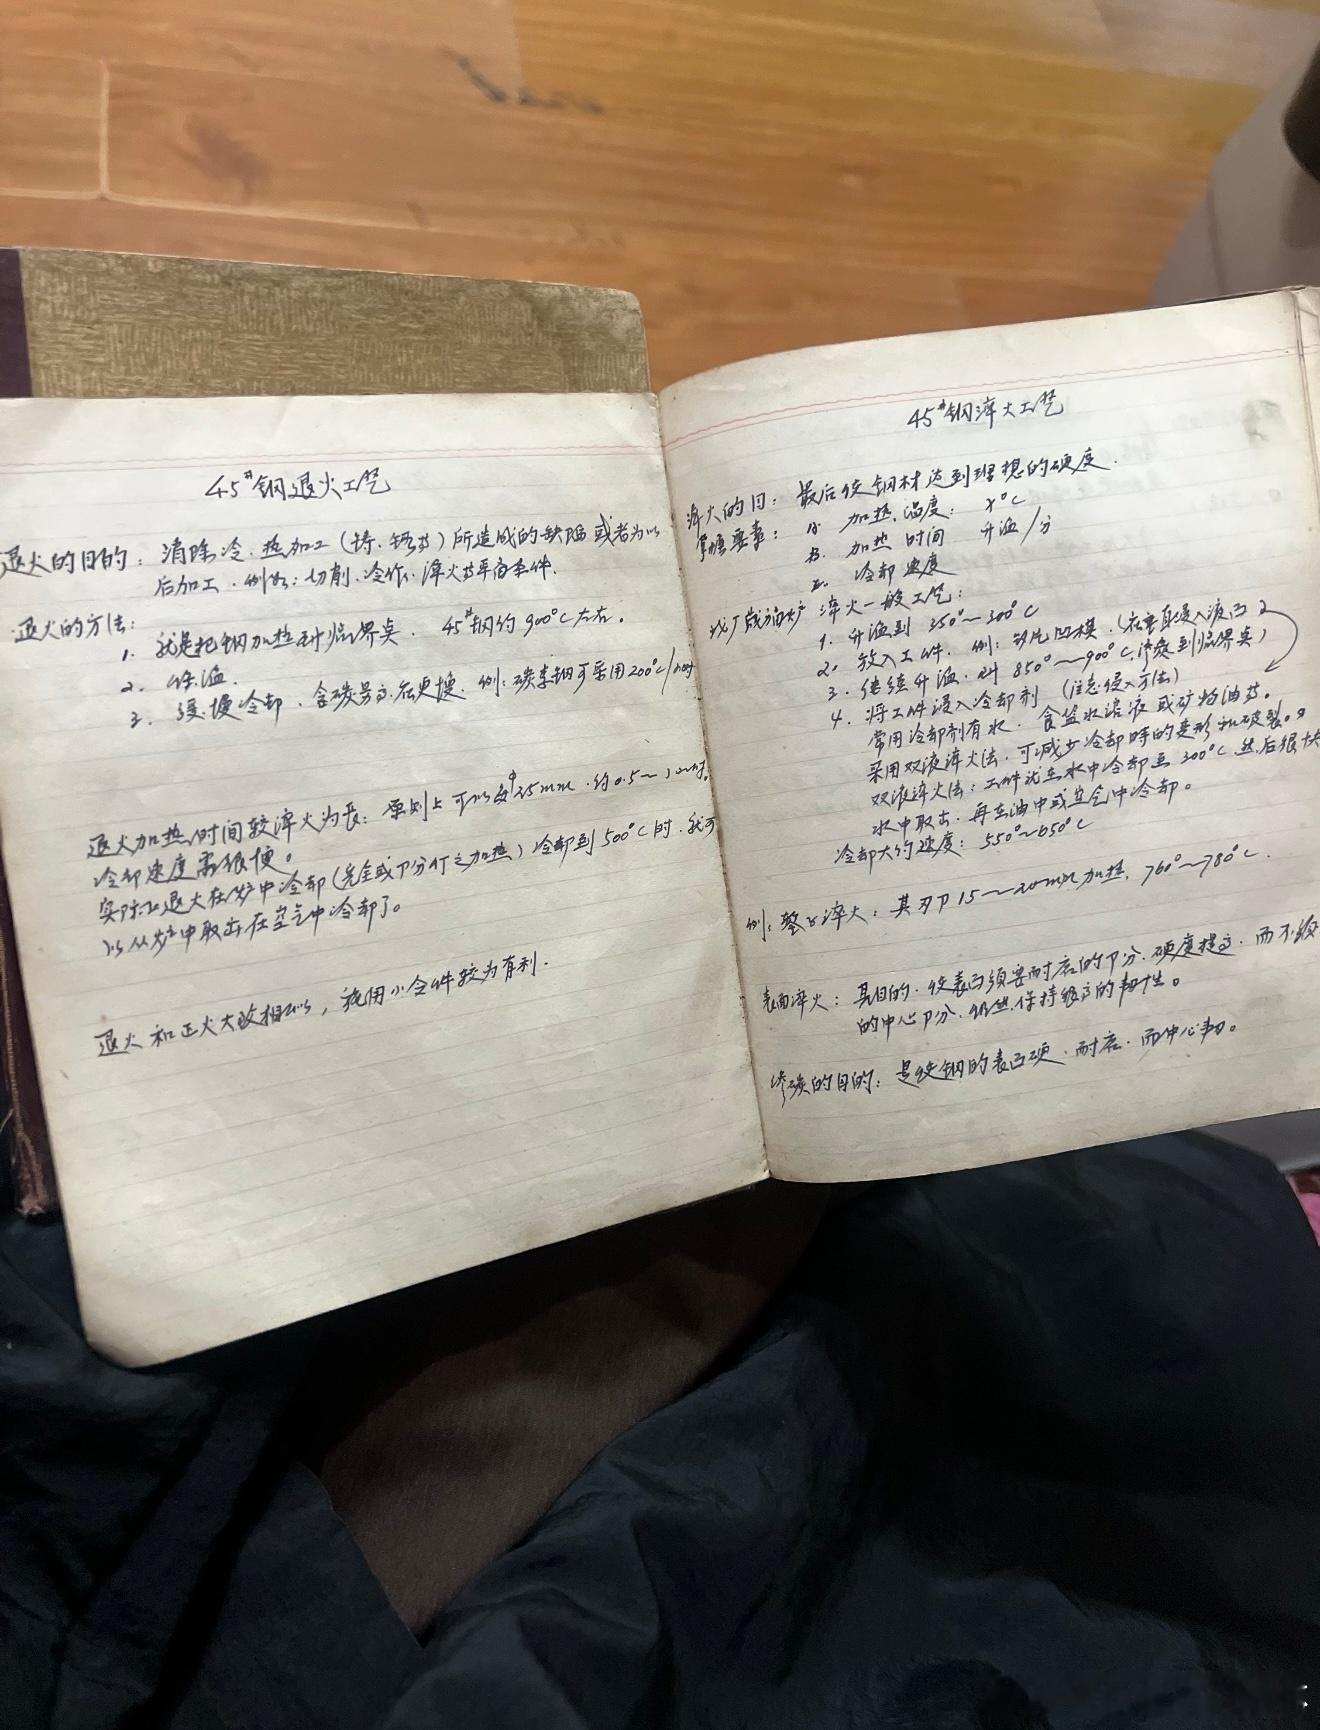 45#钢退火工艺
退火的目的：消除冷、热加工（铸、锻等）所造成的缺陷或者为以
后加工、例如：切削、冷作、淬火等准备条件.
退火的方法：
1. 就是把钢加热到临界点. 45#钢约900°C左右.
2. 保温.
3. 缓慢冷却、含碳量高应更慢. 例：碳素钢可采用200°C/小时
退火加热时间较淬火为长：原则上可以每φ25mm.约0.5～1小时.
冷却速度需很慢。
实际上退火在炉中冷却（完全或部分仃止加热）冷却到500°C时、就可
以从炉中取出在空气中冷却了。
退火和正火大致相似， 小令件较为有利.
45#钢淬火工艺
淬火的目：最后使钢材达到理想的硬度.
掌握要素：1. 加热温度：x°C
2. 加热时间 升温/分
3. 冷却速度
淬火一般工艺：
1. 升温到250°～300°C
2. 放入工件. 例：凹模.（应垂直浸入液面
3. 继续升温.到850°～900°C.（到临界点）
4. 将工件浸入冷却剂（注意浸入方法）
常用冷却剂有水、食盐水溶液或矿物油等.
采用双液淬火法、可减少冷却时的变形和破裂。
双液淬火法：工件先在水中冷却至300°C 然后很快
水中取出、再在油中或空气中冷却。
冷却大约速度：550°～650°C
例：錾子淬火：其刃部15～20mm加热. 760°～780°C.
表面淬火：其目的.使表面须要耐磨的部分.硬度提高.而不
的中心部分.仍然保持 的韧性。
渗碳的目的：是使钢的表面硬.耐磨.而中心韧。